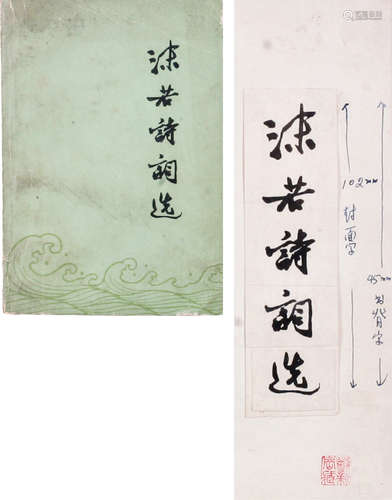 沫若詩詞选
沫若詩詞选
102mm
封面字
45mm
书背字